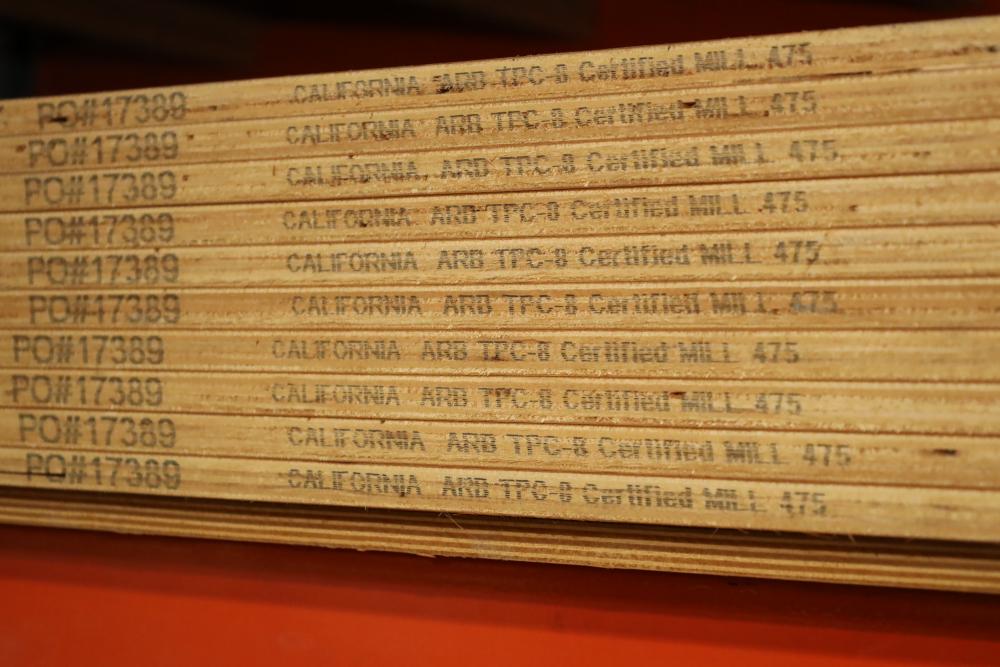 PO#17389 CALIFORNIA ARB TPC-8 Certified MILL 475
PO#17389 CALIFORNIA ARB TPC-8 Certified MILL 475
PO#17389 CALIFORNIA ARB TPC-8 Certified MILL 475
PO#17389 CALIFORNIA ARB TPC-8 Certified MILL 475
PO#17389 CALIFORNIA ARB TPC-8 Certified MILL 475
PO#17389 CALIFORNIA ARB TPC-8 Certified MILL 475
PO#17389 CALIFORNIA ARB TPC-8 Certified MILL 475
PO#17389 CALIFORNIA ARB TPC-8 Certified MILL 475
PO#17389 CALIFORNIA ARB TPC-8 Certified MILL 475
PO#17389 CALIFORNIA ARB TPC-8 Certified MILL 475